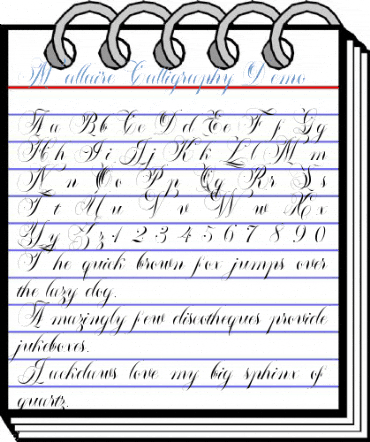 Mallaire Calligraphy Demo
Aa Bb Cc Dd Ee Ff Gg
Hh Ii Jj Kk Ll Mm
Nn Oo Pp Qq Rr Ss
Tt Uu Vv Ww Xx
Yy Zz 1 2 3 4 5 6 7 8 9 0
The quick brown fox jumps over
the lazy dog.
Amazingly few discotheques provide
jukeboxes.
Jackdaws love my big sphinx of
quartz.